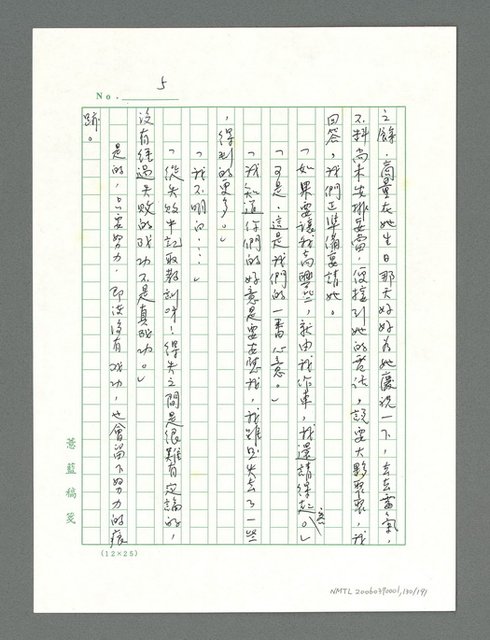 No. 5
之餘,商量在她生日那天好好為她慶祝一下,去去霉氣,
不料尚未安排妥當,便接到她的電話,說要大夥聚聚,我
回答,我們正準備宴請她。
「如果要讓我高興些,就由我作東,我還請得起。」
「可是,這是我們的一番心意。」
「我知道你們的好意是要安慰我,我雖然失去了一些
,得到的更多。」
「我不明白……」
「從失敗中記取教訓呀!得失之間是很難有定論的,
沒有經過失敗的成功不是真成功。」
是的,只要努力,即使沒有成功,也會留下努力的痕
跡。
薏藍稿箋
(12×25)
NMTL 20060390001, 130/191